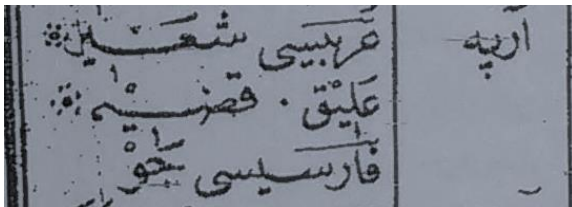 آرپه عربیسی شعیر
علیق . قضیم
فارسیسی جو